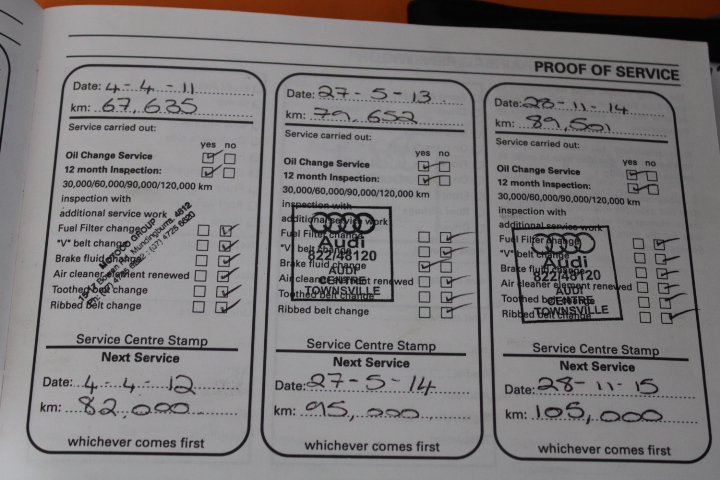 PROOF OF SERVICE
Date: 4-4-11
km: 67,635
Service carried out:
yes no
Oil Change Service
12 month Inspection:
30,000/60,000/90,000/120,000 km
inspection with
additional service work
Fuel Filter change
"V" belt change
Brake fluid change
Air cleaner element renewed
Toothed belt change
Ribbed belt change
GROUP
Mundingburra, 4812
Service Centre Stamp
Next Service
Date: 4-4-12
km: 82,000
whichever comes first
Date: 27-5-13
km: 79,652
Service carried out:
yes no
Oil Change Service
12 month Inspection:
30,000/60,000/90,000/120,000 km
inspection with
additional service work
Fuel Filter change
"V" belt change
Brake fluid change
Air cleaner element renewed
Toothed belt change
Ribbed belt change
Audi
822/48120
AUDI
CENTRE
TOWNSVILLE
Service Centre Stamp
Next Service
Date: 27-5-14
km: 95,000
whichever comes first
Date: 28-11-14
km: 89,501
Service carried out:
yes no
Oil Change Service
12 month Inspection:
30,000/60,000/90,000/120,000 km
inspection with
additional service work
Fuel Filter change
"V" belt change
Brake fluid change
Air cleaner element renewed
Toothed belt change
Ribbed belt change
Audi
822/48120
AUDI
CENTRE
TOWNSVILLE
Service Centre Stamp
Next Service
Date: 28-11-15
km: 105,000
whichever comes first